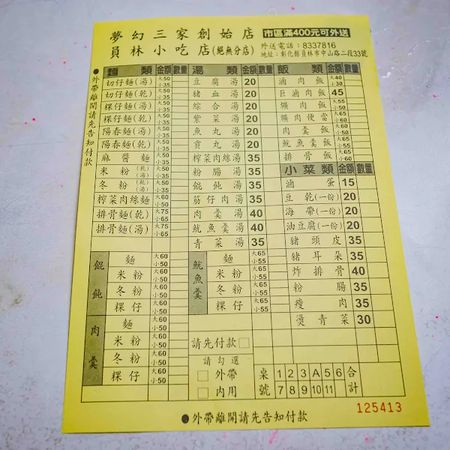 夢幻三家創始店 市區滿400元可外送
員林小吃店(絕無分店) 外送電話:8337816
地址:彰化縣員林市中山路二段33號
●外帶離開請先告知付款
麵類 金額 數量
切仔麵(湯) 大50 小35
切仔麵(乾)
粿仔麵(湯)
粿仔麵(乾)
陽春麵(湯)
陽春麵(乾)
麻醬麵
米粉(湯)(乾)
冬粉(湯)(乾)
榨菜肉絲麵
排骨麵(乾) 大75 小65
排骨麵(湯) 大75 小65
湯類 金額 數量
豆腐湯 20
豬血湯 20
綜合湯 20
紫菜湯 20
魚丸湯 20
貢丸湯 20
榨菜肉絲湯 35
粉腸湯 35
餛飩湯 35
筍仔肉湯 35
肉羹湯 40
魷魚湯 40
青菜湯 35
飯類 金額 數量
滷肉飯 大40 小30
巨滷肉飯 45
爌肉飯
爌肉便當
肉羹飯
魷魚羹飯
排骨飯
小菜類 金額 數量
滷蛋 15
豆乾(一份) 20
海帶(一份) 20
油豆腐(一份) 20
豬頭皮 35
豬耳朵 35
炸排骨 40
粉腸 35
瘦肉 35
燙青菜 30
餛飩
麵 大60 小50
米粉 大60 小50
冬粉 大60 小50
粿仔 大60 小50
肉羹
麵 大60 小50
米粉 大60 小50
冬粉 大60 小50
粿仔 大60 小50
魷魚羹
麵 大65 小55
米粉 大65 小55
冬粉 大65 小55
粿仔 大65 小55
請先付款□
請勾選
□外帶
□內用
桌號 1 2 3 A 5 6
7 8 9 10 11
合計
125413
●外帶離開請先告知付款